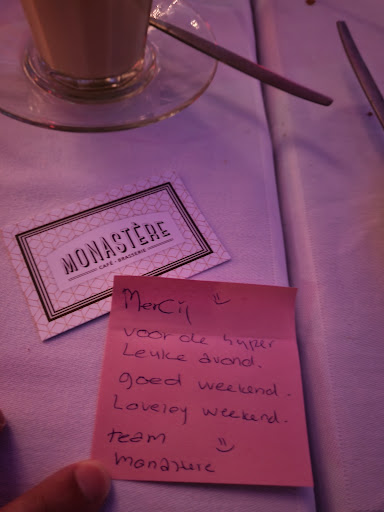 MONASTÈRE
CAFÉ · BRASSERIE
Mercij
voor de hyper
Leuke avond.
goed weekend.
Loveley weekend.
team
monastere